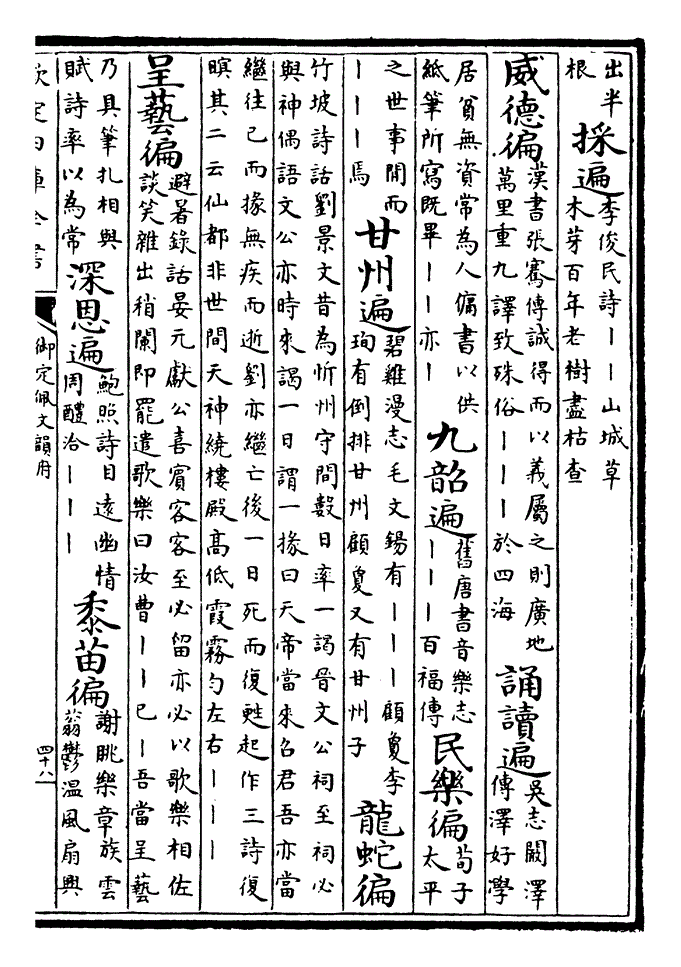 出半
根
採遍
李俊民詩丨丨山城草
木芽百年老樹盡枯查
威德徧
漢書張騫傳誠得而以義屬之則廣地
萬里重九譯致殊俗丨丨丨於四海
誦讀遍
吳志闞澤
傳澤好學
居貧無資常為人傭書以供
紙筆所寫既畢丨丨亦丨
九韶遍
舊唐書音樂志
丨丨丨百福傳
民樂徧
荀子
太平
之世事閒而
丨丨丨焉
甘州遍
碧雞漫志毛文錫有丨丨丨顧夐李
珣有倒排甘州顧夐又有甘州子
龍蛇徧
竹坡詩話劉景文昔為忻州守間數日率一謁晉文公祠至祠必
與神偶語文公亦時來謁一日謂一掾曰天帝當來召君吾亦當
繼往已而掾無疾而逝劉亦繼亡後一日死而復甦起作三詩復
瞑其二云仙都非世間天神繞樓殿高低霞霧勻左右丨丨丨
呈藝徧
避暑錄話晏元獻公喜賓客客至必留亦必以歌樂相佐
談笑雜出稍闌即罷遣歌樂曰汝曹丨丨已丨吾當呈藝
乃具筆札相與
賦詩率以為常
深恩遍
鮑照詩目遠幽情
周醴洽丨丨丨
黍苗徧
謝眺樂章族雲
蓊鬱溫風扇興
欽定四庫全書
御定佩文韻府
四十八